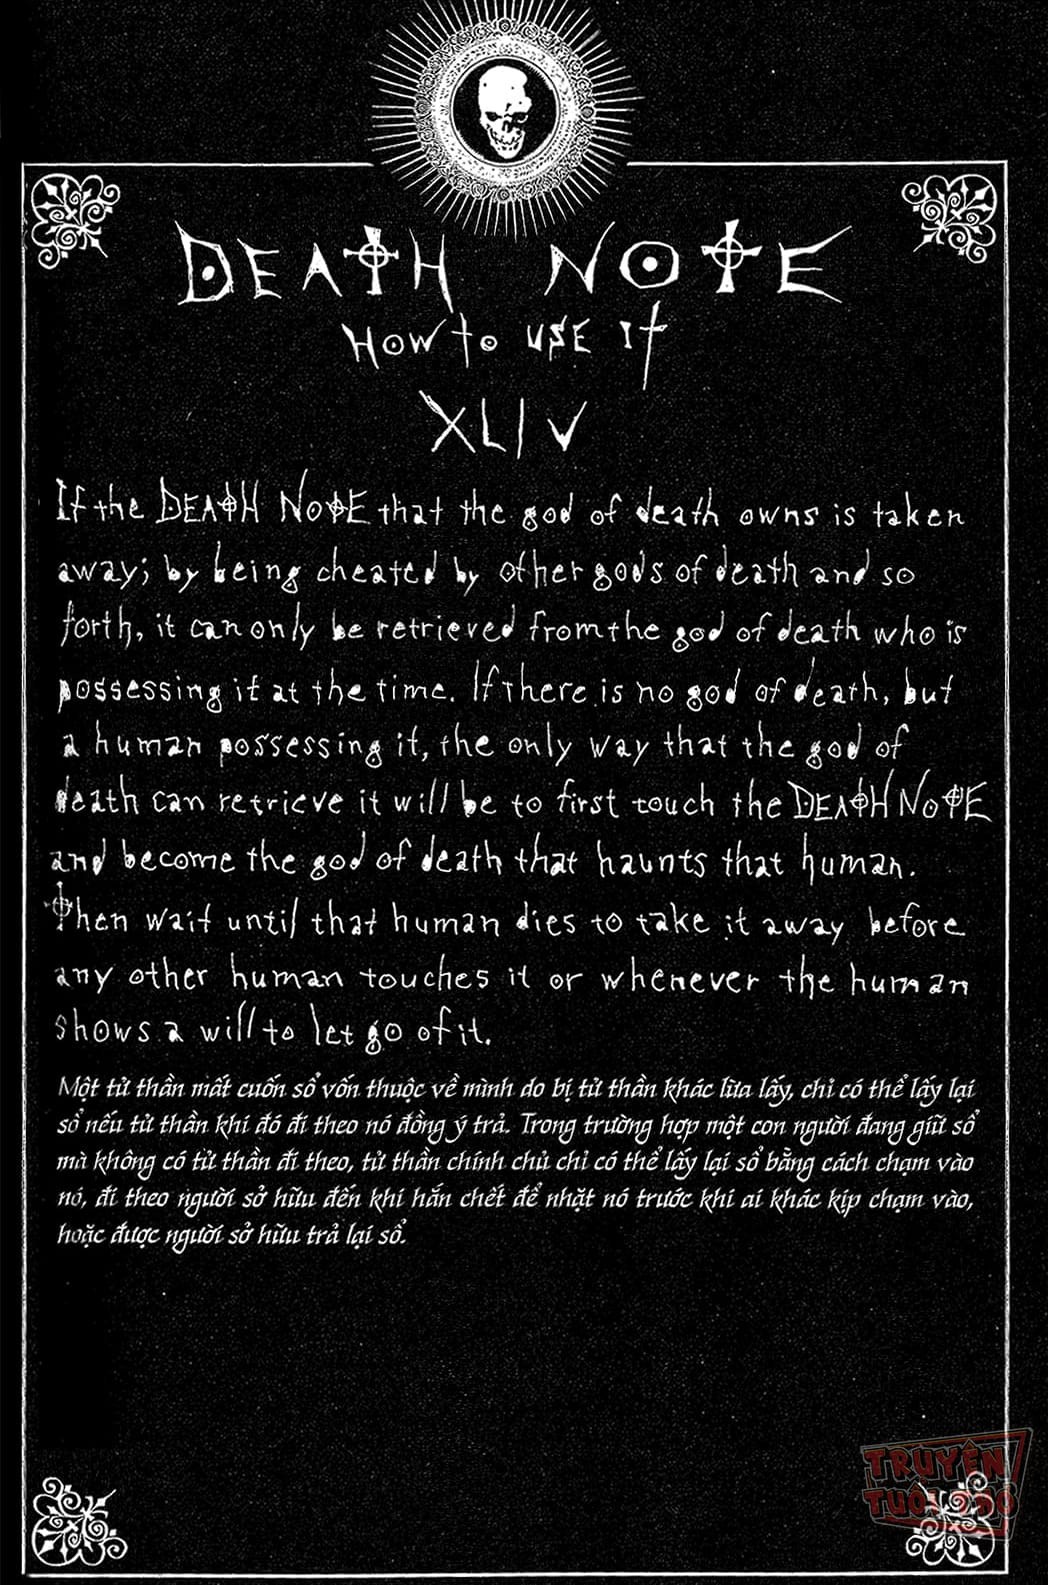 DEATH NOTE
HOW to USE It
XLIV
If the DEATH NOTE that the god of death owns is taken
away; by being cheated by other gods of death and so
forth, it can only be retrieved from the god of death who is
possessing it at the time. If there is no god of death, but
a human possessing it, the only way that the god of
death can retrieve it will be to first touch the DEATH NOTE
and become the god of death that haunts that human.
Then wait until that human dies to take it away before
any other human touches it or whenever the human
shows a will to let go of it.
Một tử thần mất cuốn sổ vốn thuộc về mình do bị tử thần khác lừa lấy, chỉ có thể lấy lại
sổ nếu tử thần khi đó đi theo nó đồng ý trả. Trong trường hợp một con người đang giữ sổ
mà không có tử thần đi theo, tử thần chính chủ chỉ có thể lấy lại sổ bằng cách chạm vào
nó, đi theo người sở hữu đến khi hắn chết để nhặt nó trước khi ai khác kịp chạm vào,
hoặc được người sở hữu trả lại sổ.
TRUYỆN
TUỔI THƠ